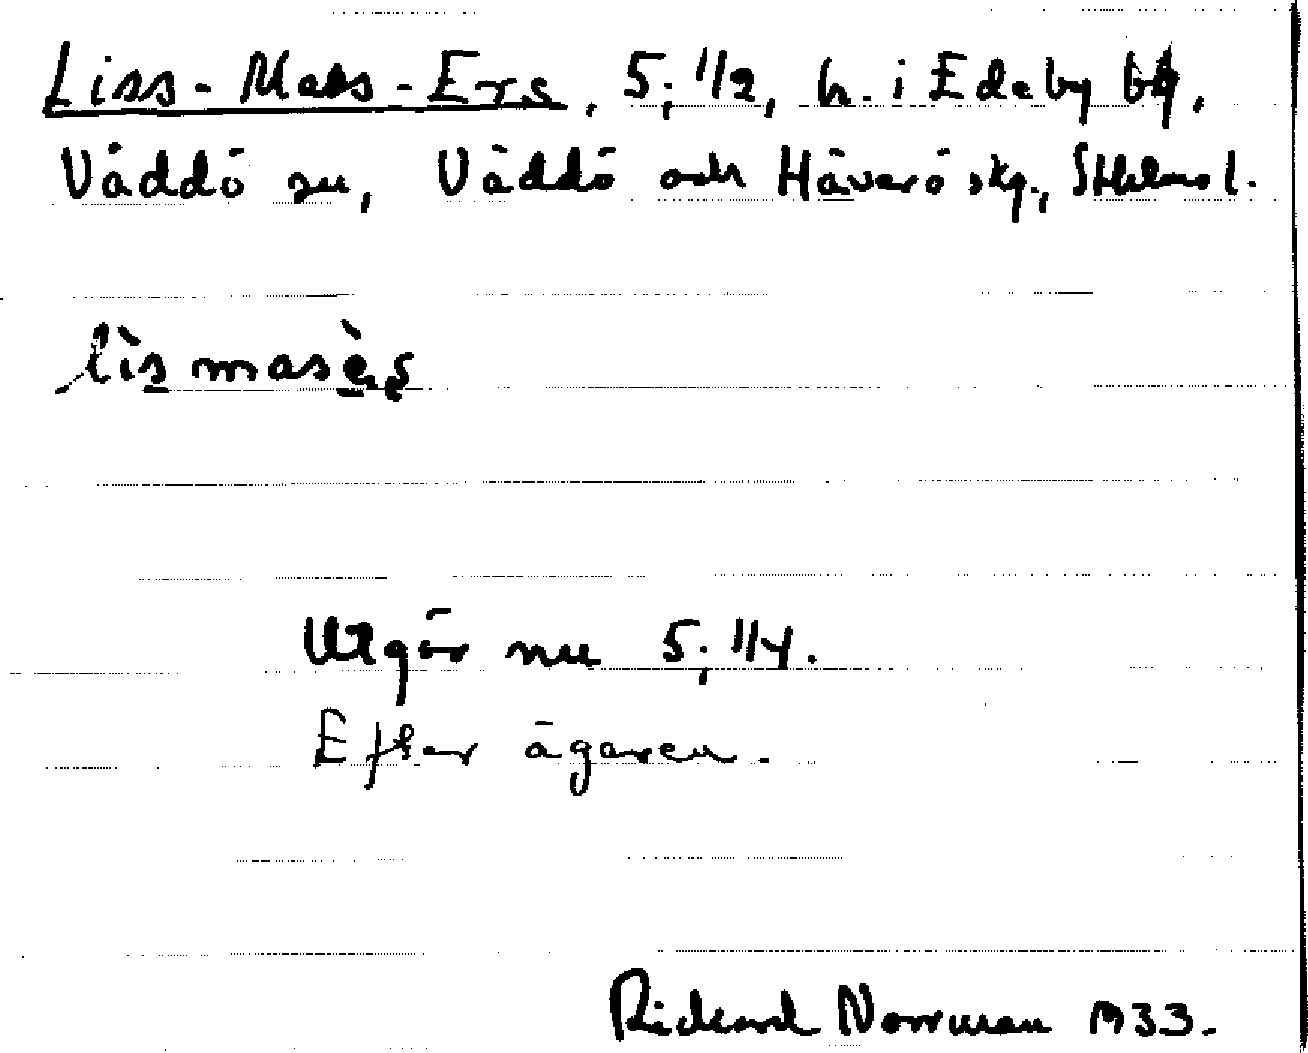 Liss-Mats-Ers, 5; 1/2, h. i Edeby by,
Väddö sn, Väddö och Häverö skg., Sthlms l.
lìs masès
Utgör nu 5; 1/4.
Efter ägaren.
Rickard Norrman 1933.